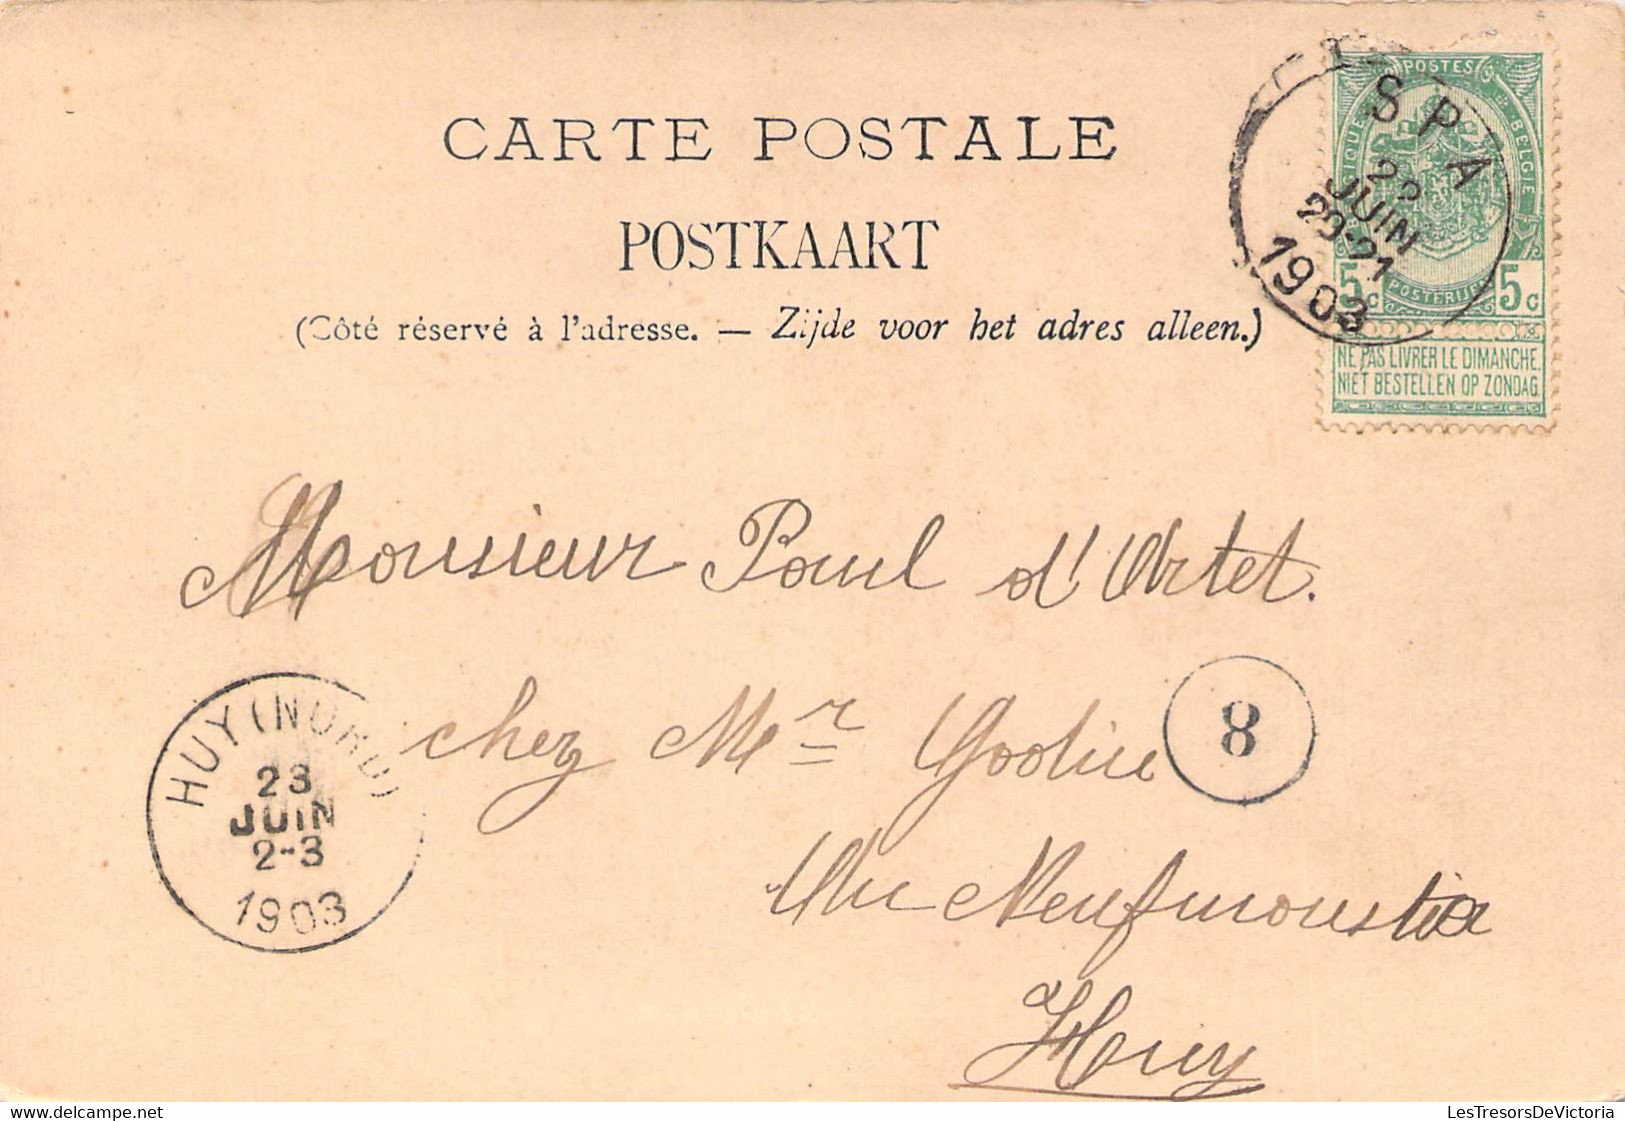 CARTE POSTALE
POSTKAART
(Côté réservé à l'adresse. — Zijde voor het adres alleen.)
POSTES
BELGIE
POSTERIJEN
5c 5c
NE PAS LIVRER LE DIMANCHE.
NIET BESTELLEN OP ZONDAG
SPA
22
JUIN
20-21
1903
Monsieur Paul d'Artet.
chez Mr
8
Neufmoustier
Huy
HUY (NORD)
23
JUIN
2-3
1903
LesTresorsDeVictoria